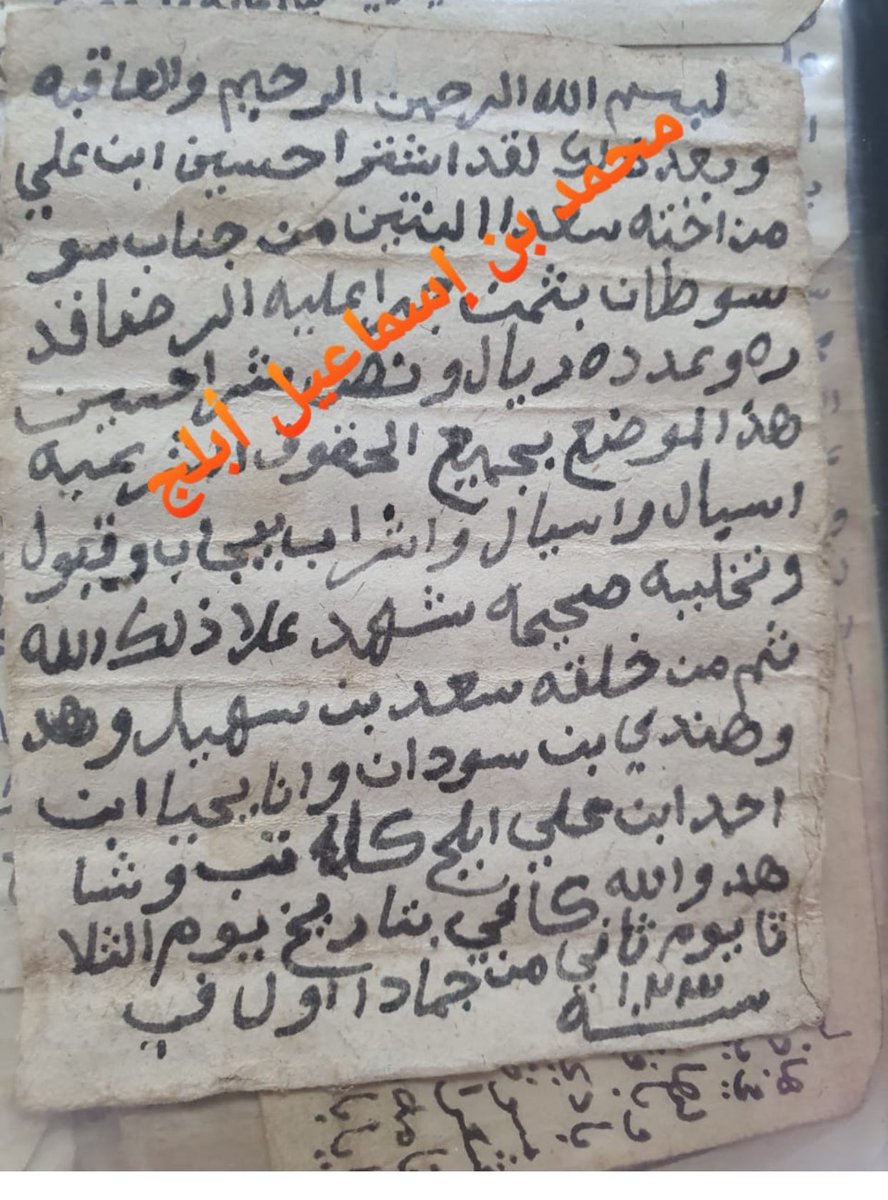 لبسم الله الرحمن الرحيم والعاقبه
وبعد لقد اشترا حسين ابن علي
من اخته سعدا البنتين من جناب سو
سوطان بثمن عليه الرضا قد
ره وعدده ريال ونصف شرا حسين
هذا الموضع بجميع الحقوق الشرعيه
اسبال واسيال واشراب بيجاب وقبول
وتخليه صحيحه شهد علا ذلك الله
ثم من خلقه سعد بن سهيل وهد
وهندي بن سودان وانا يحيا ابن
احمد ابن علي ابلج كاتب وشا
هد والله كافي بتاريخ يوم الثلا
ثا يوم ثاني من جمادا اول في
سنة
محمد بن إسماعيل أبلج